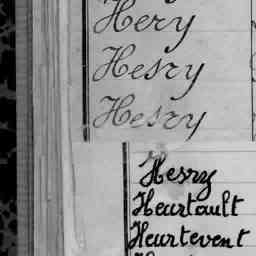 Hery
Hesry
Hesry
Hesry
Heurtault
Heurtevent